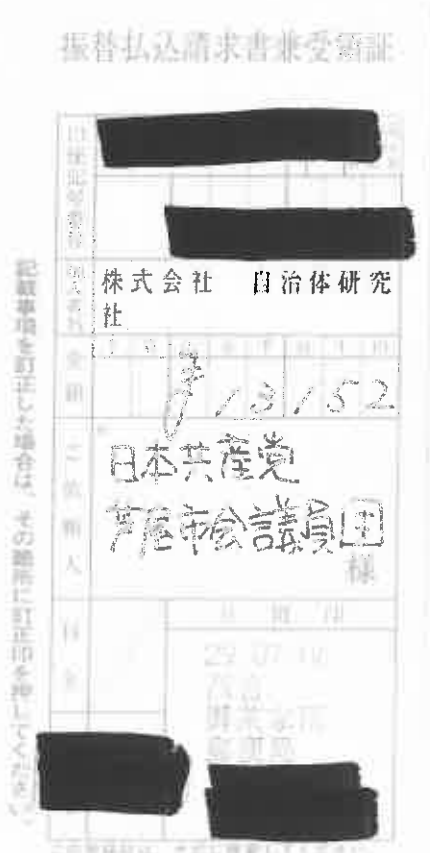 振替払込請求書兼受領証
口座記号番号
加入者名
株式会社 自治体研究
社
金額
¥13152
ご依頼人
日本共産党
芦屋市会議員団
様
日附印
29.07
記載事項を訂正した場合は、その箇所に訂正印を押してください。